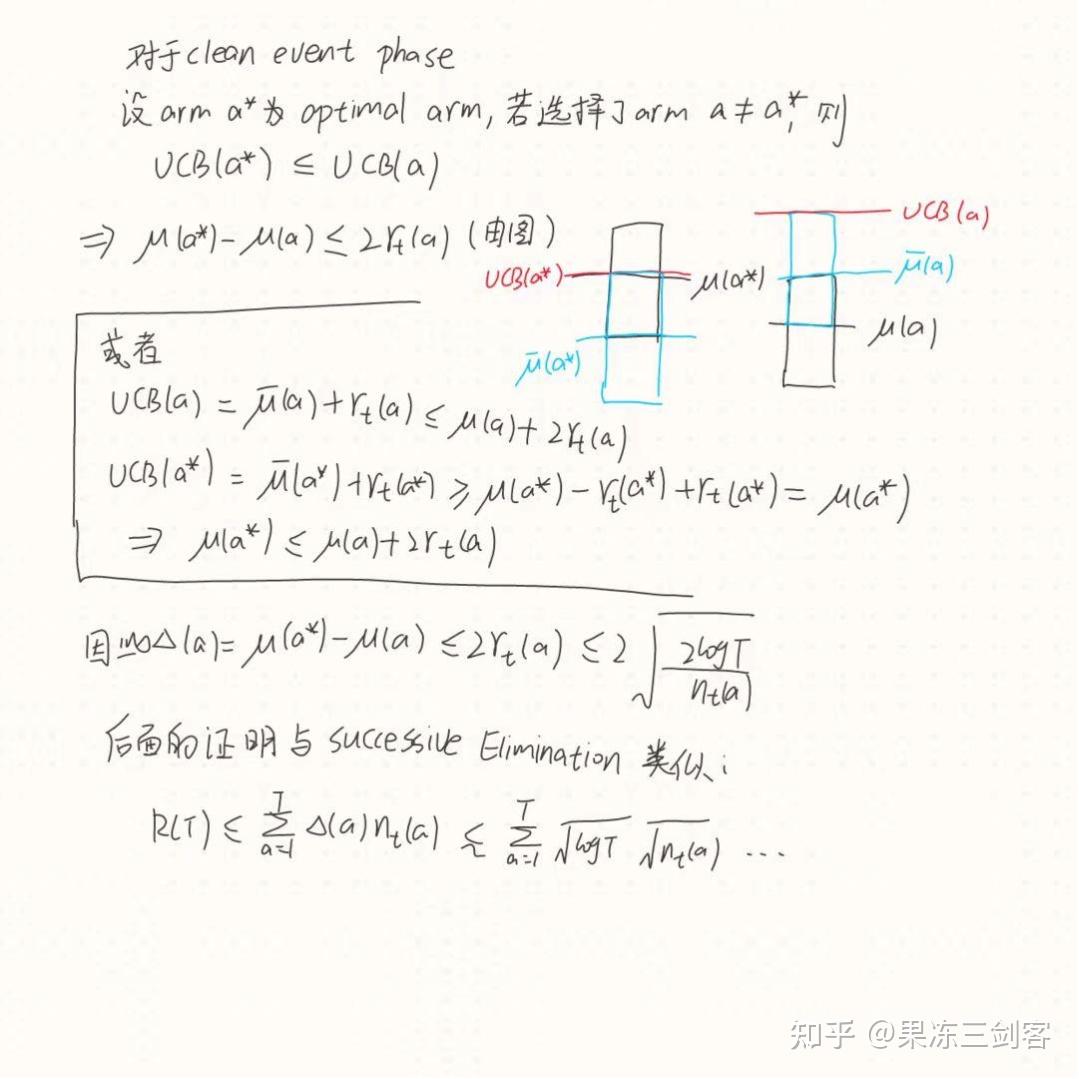 对于clean event phase
设arm a*为optimal arm,若选择了arm a≠a*,则
UCB(a*) ≤ UCB(a)
⇒ μ(a*)-μ(a) ≤ 2r_t(a) (由图)
UCB(a)
UCB(a*)
μ(a*)
μ̄(a)
μ(a)
μ̄(a*)
或者
UCB(a) = μ̄(a)+r_t(a) ≤ μ(a)+2r_t(a)
UCB(a*) = μ̄(a*)+r_t(a*) ≥ μ(a*)-r_t(a*)+r_t(a*) = μ(a*)
⇒ μ(a*) ≤ μ(a)+2r_t(a)
因此Δ(a)= μ(a*)-μ(a) ≤2r_t(a) ≤2√(2logT/n_t(a))
后面的证明与successive Elimination 类似:
R(T) ≤ ∑_{a=1}^{T} Δ(a)n_t(a) ≲ ∑_{a=1}^{T} √logT √n_t(a) ...
知乎 @果冻三剑客